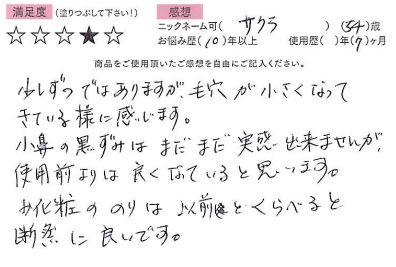 満足度 (塗りつぶして下さい!) 感想
☆☆☆★☆
ニックネーム可( サクラ ) (34)歳
お悩み歴(10)年以上 使用歴( )年(7)ヶ月
商品をご使用頂いたご感想を自由にご記入ください。
少しずつではありますが毛穴が小さくなって
きている様に感じます。
小鼻の黒ずみはまだまだ実感出来ませんが、
使用前よりは良くなっていると思います。
お化粧ののりは以前とくらべると
断然に良いです。